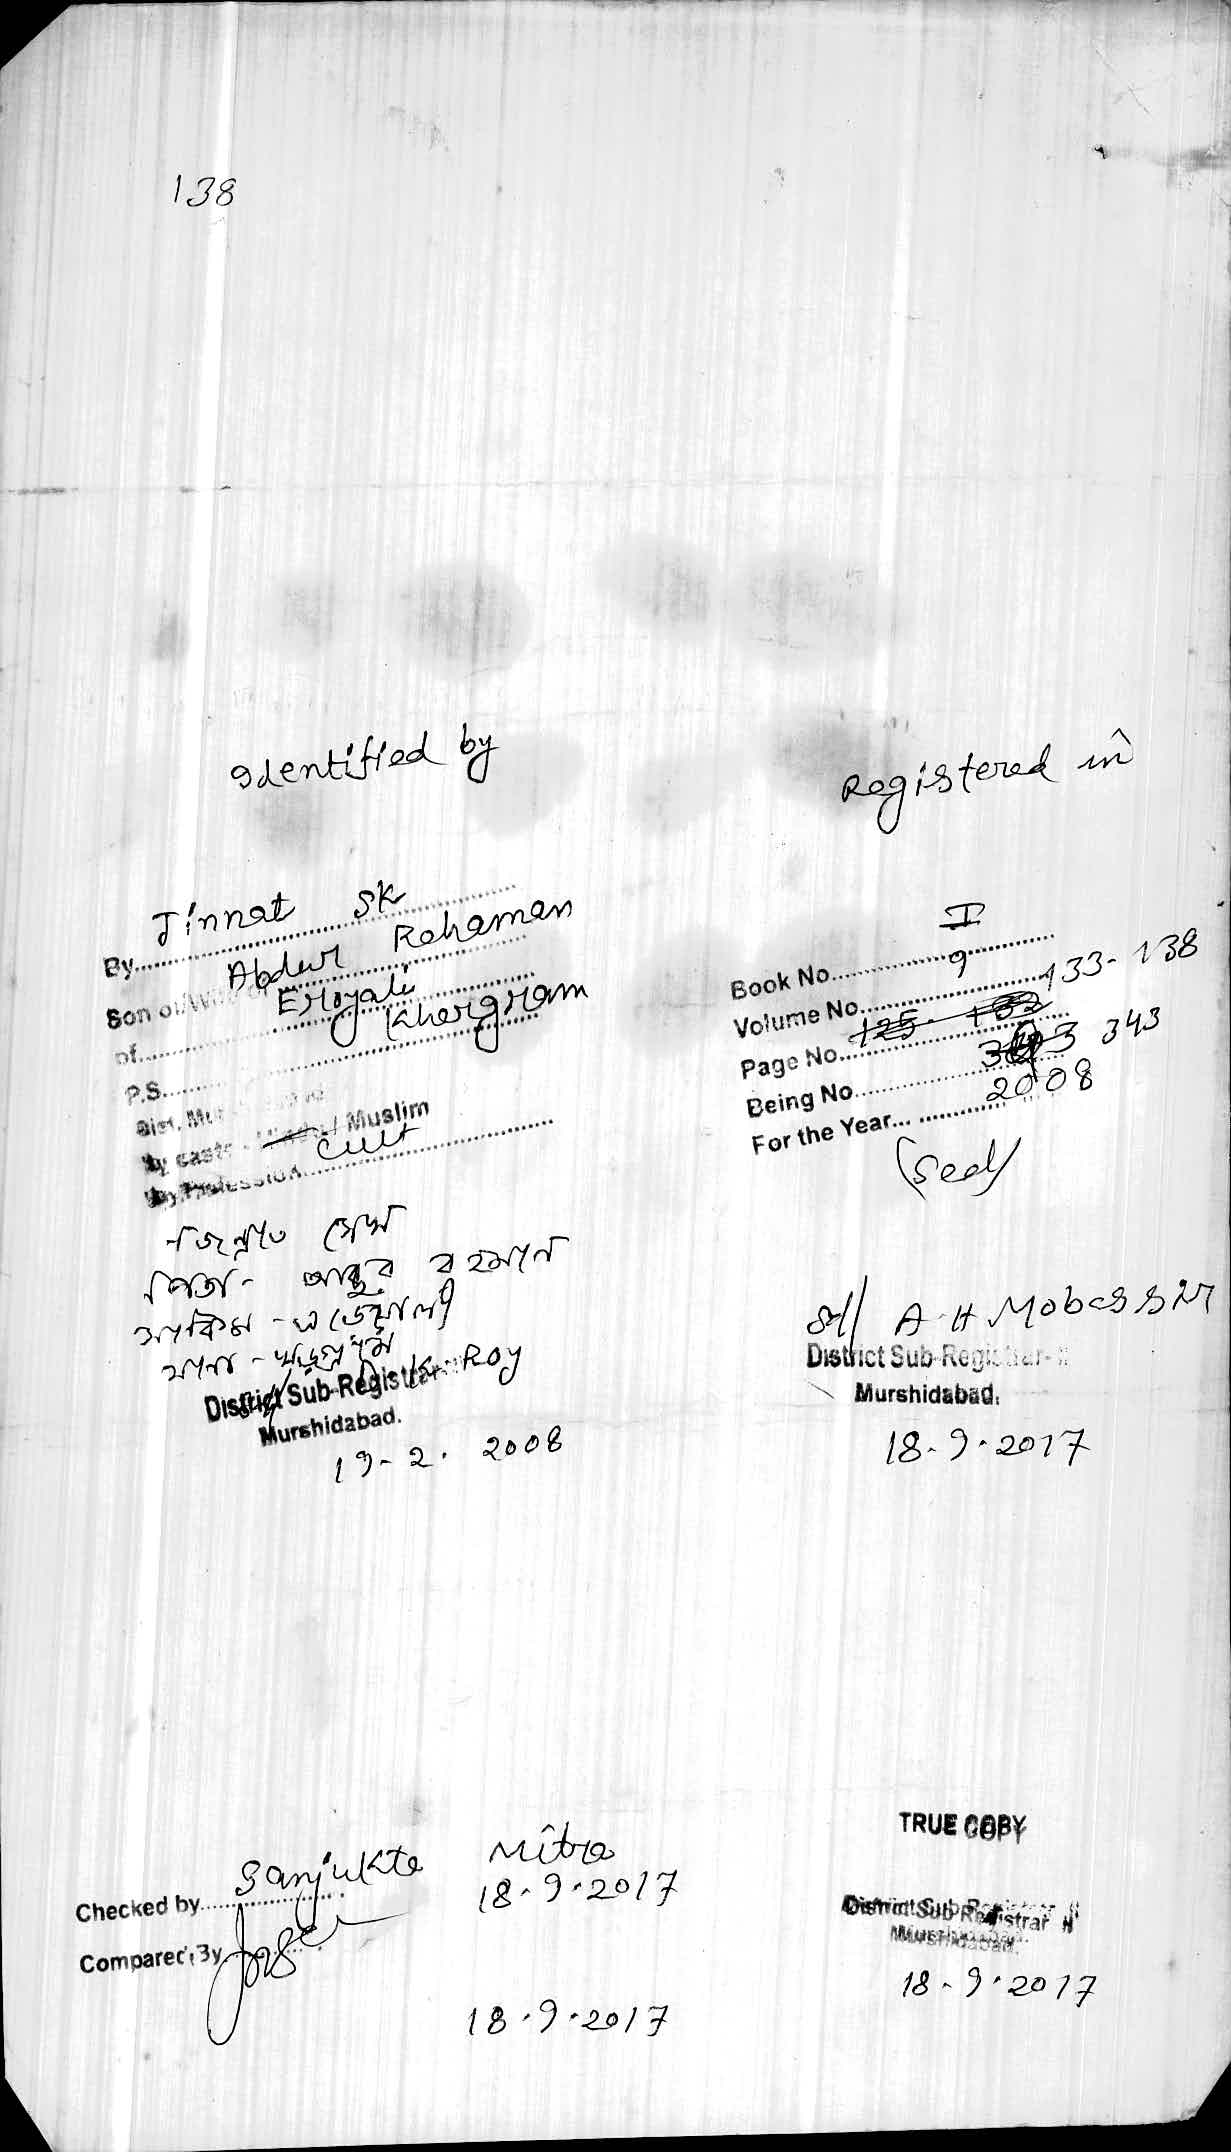 138
Identified by
By Jinnat SK
Son of/Wife of Abdur Rahaman
of Eroyali
P.S. Khargram
Dist. Mur
By caste - Hindu / Muslim
By Profession Cult
জিন্নাত সেখ
পিতা - আব্দুর রহমান
সাকিম - এড়োয়ালী
থানা - খড়গ্রাম
Sd/ D. K. Roy
District Sub-Registrar
Murshidabad.
19-2. 2008
Registered in
Book No. I
Volume No. 9
Page No. 125-132 133-138
Being No. 343
For the Year 2008
(Seal)
Sd/ A H Mobassar
District Sub-Registrar-II
Murshidabad.
18-9.2017
Checked by Sanjukta Mitra
18.9.2017
Compared By
18.9.2017
TRUE COPY
District Sub Registrar II
Murshidabad.
18-9.2017